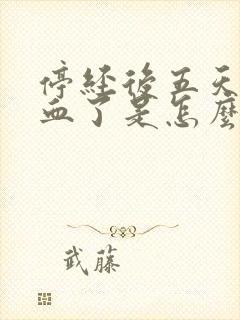 停經後五天
血了是怎麼
武藤